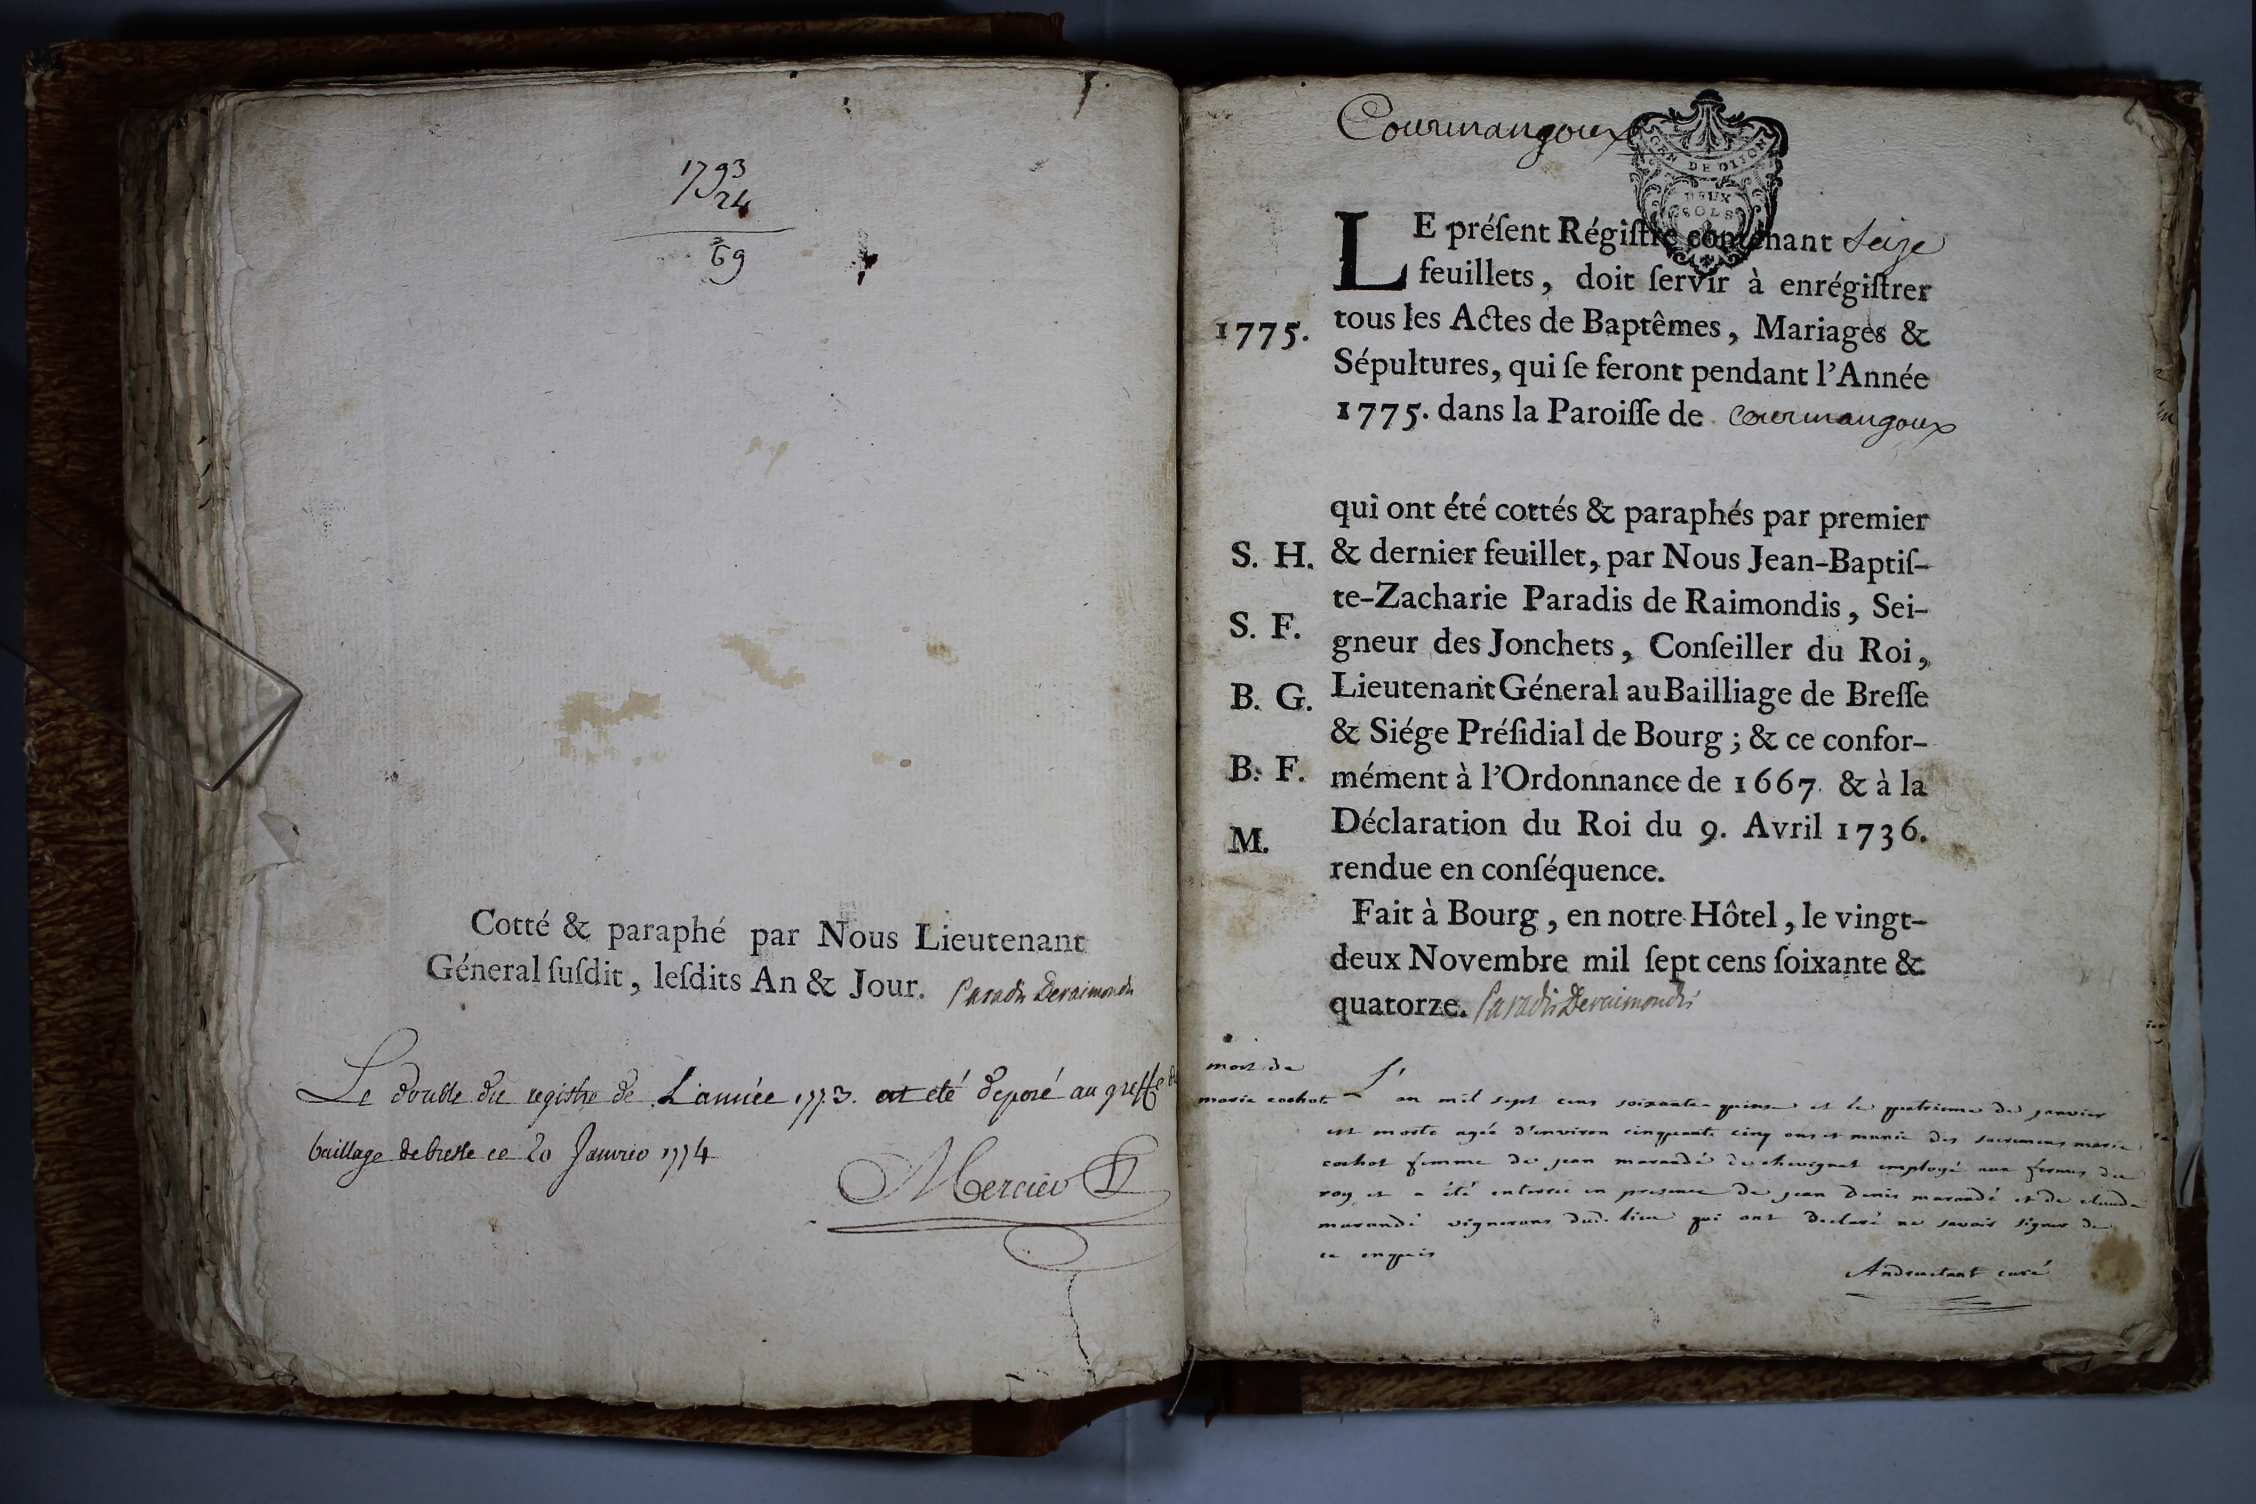 1793
24
69
Cotté & paraphé par Nous Lieutenant
Géneral ſuſdit, leſdits An & Jour. Paradis Deraimondis
Le double du registre de L'année 1773. ont été deposé au greffe du
bailliage de bresse ce 20 Janvier 1774
Mercier
Courmangoux
GEN DE DIJON
DEUX
SOLS
LE préſent Régiſtre contenant seize
feuillets, doit ſervir à enrégiſtrer
1775. tous les Actes de Baptêmes, Mariages &
Sépultures, qui ſe feront pendant l'Année
1775. dans la Paroiſſe de courmangoux
qui ont été cottés & paraphés par premier
S. H. & dernier feuillet, par Nous Jean-Baptiſ-
te-Zacharie Paradis de Raimondis, Sei-
S. F.
gneur des Jonchets, Conſeiller du Roi,
B. G. Lieutenant Géneral au Bailliage de Breſſe
& Siége Préſidial de Bourg ; & ce confor-
B. F. mément à l'Ordonnance de 1667. & à la
M. Déclaration du Roi du 9. Avril 1736.
rendue en conſéquence.
Fait à Bourg, en notre Hôtel, le vingt-
deux Novembre mil ſept cens ſoixante &
quatorze. Paradis Deraimondis
mort de
marie cochot
an mil sept cens soixante quinze et le quatrieme de janvier
est morte agée d'environ cinquante cinq ans et munie des sacremens marie
cochot femme de jean marandé de chevignat employé aux fermes du
roy et a été enterrée en presence de jean Denis marandé et de claude
marandé vignerons dud. lieu qui ont declaré ne savoir signer de
ce enquis
curé